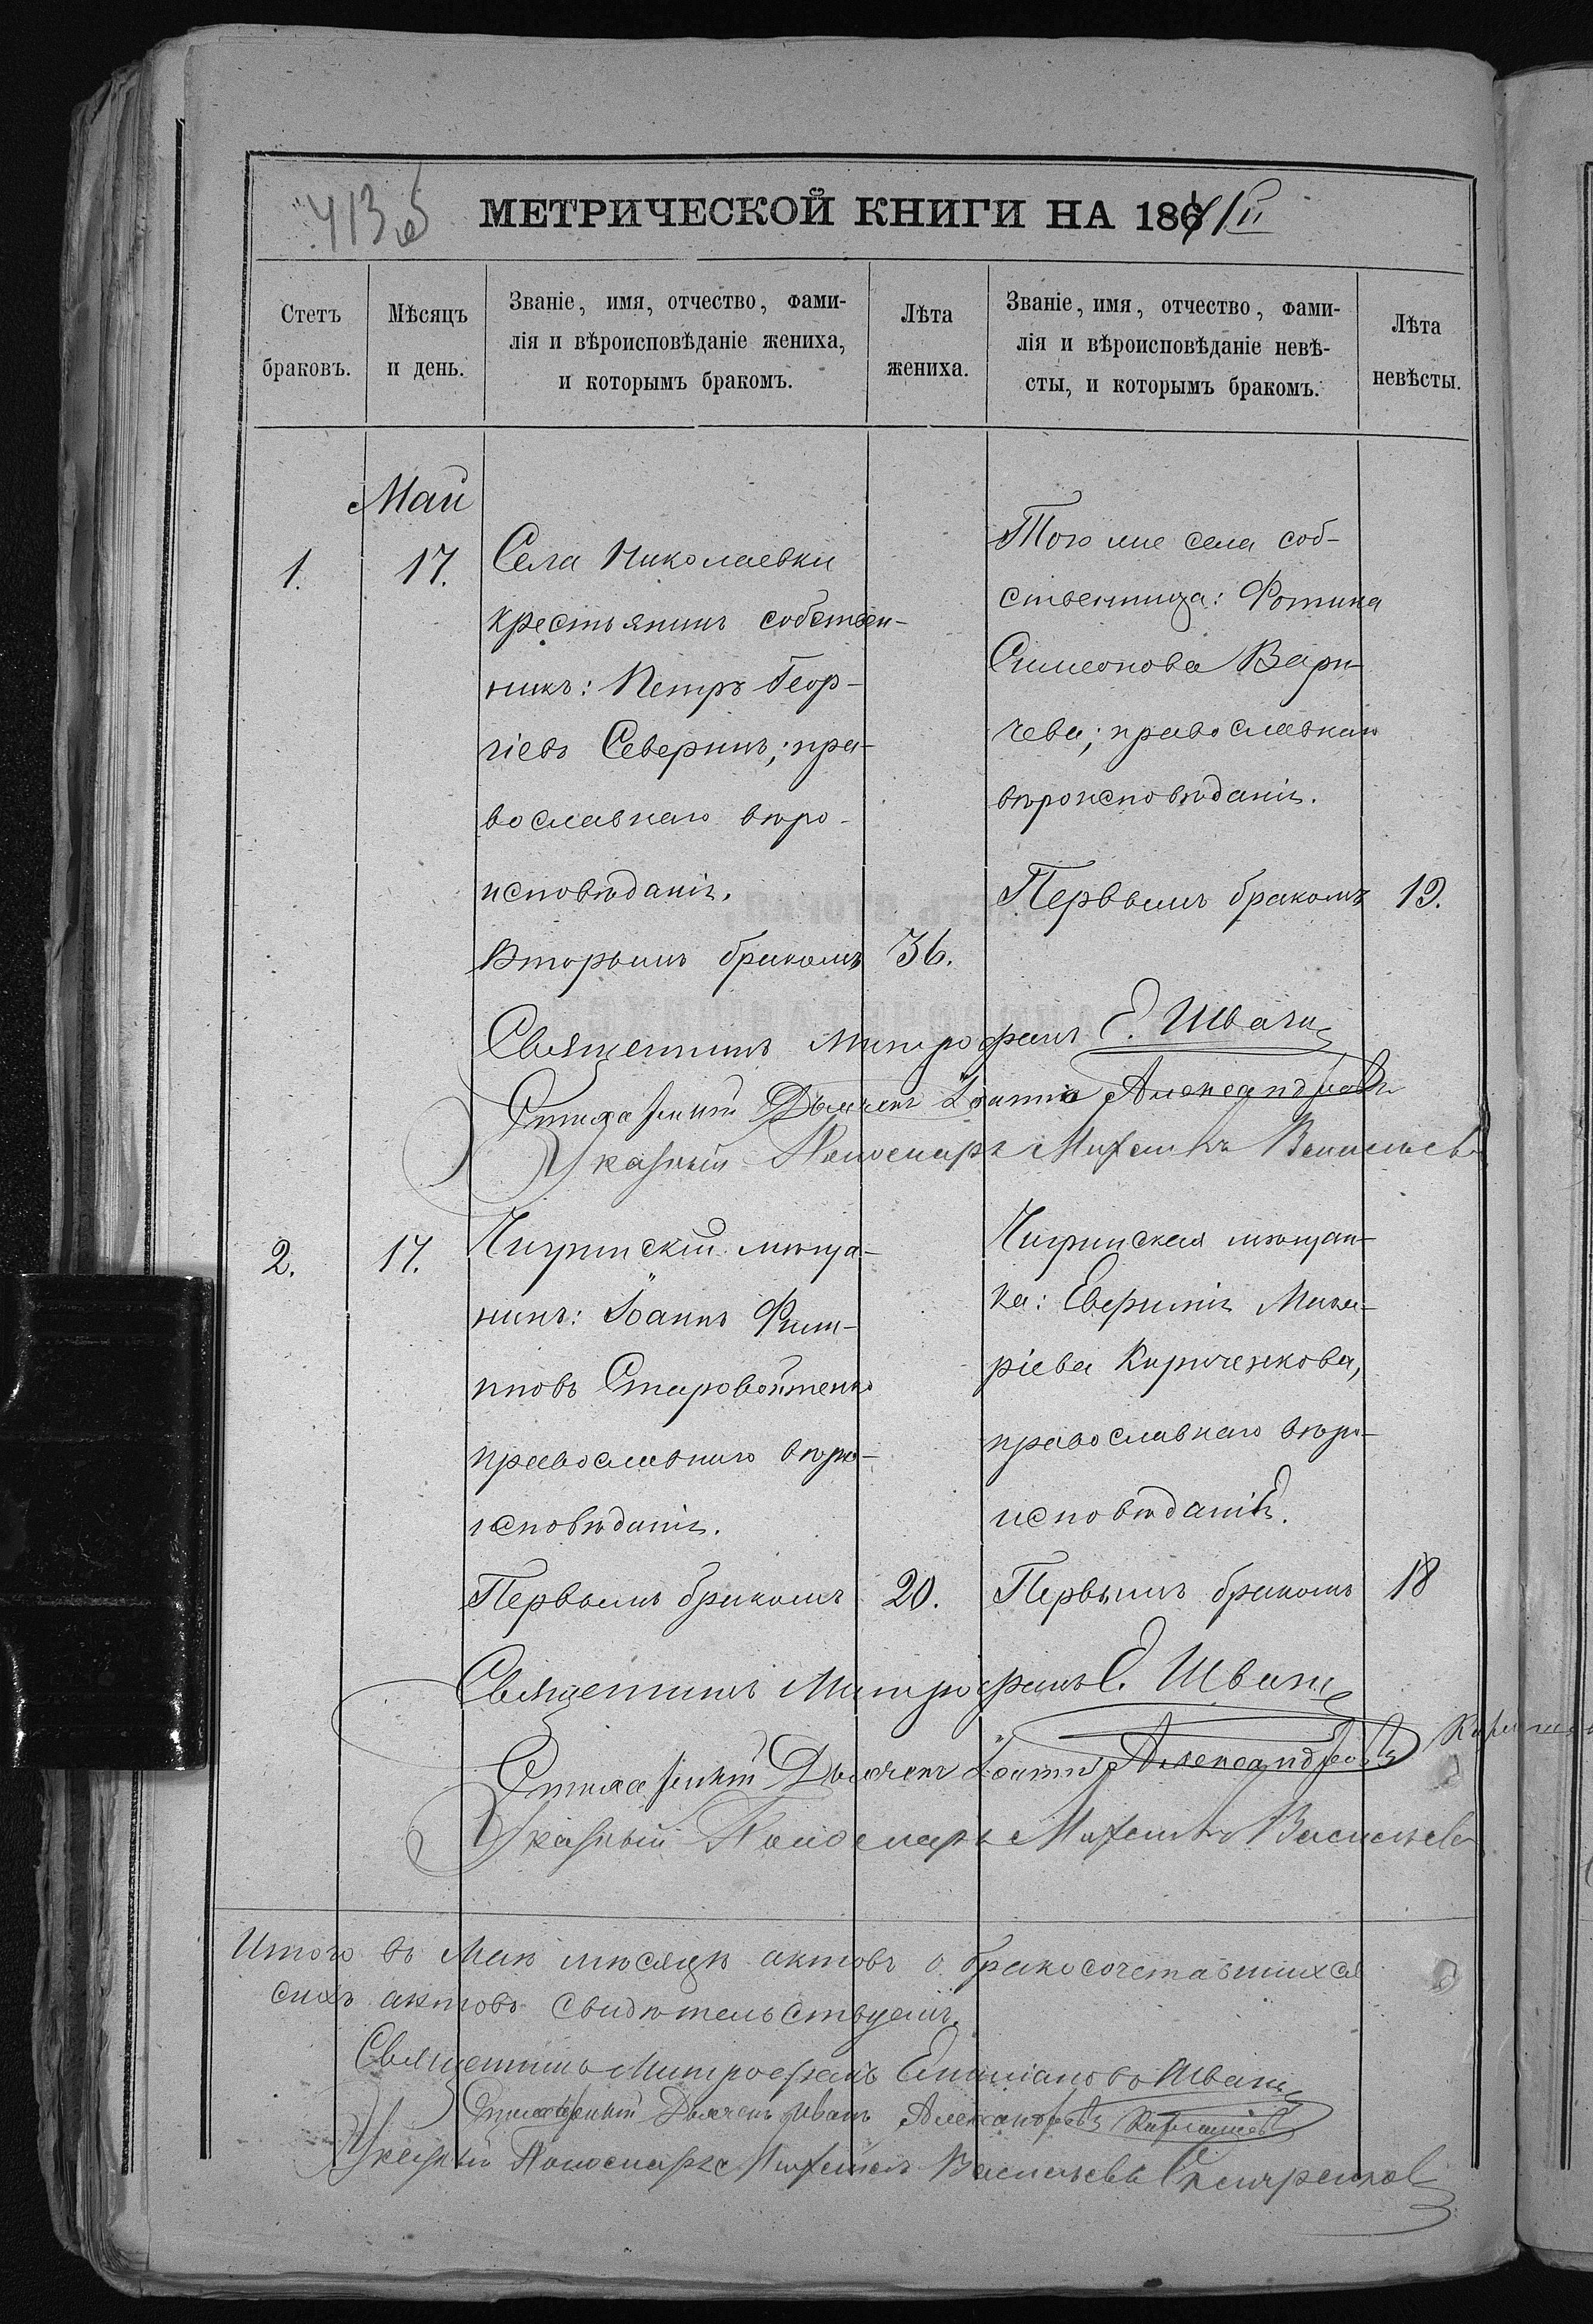 МЕТРИЧЕСКОЙ КНИГИ НА 186
Счетъ браковъ.
Мѣсяцъ и день.
Званіе, имя, отчество, фами-
лія и вѣроисповѣданіе жениха,
и которымъ бракомъ.
Лѣта жениха.
Званіе, имя, отчество, фами-
лія и вѣроисповѣданіе невѣ-
сты, и которымъ бракомъ.
Лѣта невѣсты.
Май
1.
17.
Села Николаевки
крестьянинъ собствен-
никъ: Петръ Геор-
гіевъ Северинъ; пра-
вославнаго вѣро-
исповѣданія.
Вторымъ бракомъ
36.
Того же села соб-
ственница: Фотина
Симеонова Вари-
чева; православнаго
вѣроисповѣданія.
Первымъ бракомъ
19.
Священникъ Митрофанъ Е. Швачъ
Стихарный Дьячекъ Іоаннъ Александровъ
Указный Пономарь Михаилъ Васильевъ
2.
17.
Чигринскій мѣща-
нинъ: Іоаннъ Фили-
пповъ Старовойтенко
православнаго вѣро-
исповѣданія.
Первымъ бракомъ
20.
Чигринская мѣщан-
ка: Евфимія Мака-
ріева Кириченкова,
православнаго вѣро-
исповѣданія.
Первымъ бракомъ
18
Священникъ Митрофанъ Е. Швачъ
Стихарный Дьячекъ Іоаннъ Александровъ
Указный Пономарь Михаилъ Васильевъ
Итого въ Маѣ мѣсяцѣ актовъ о бракосочетавшихся
сихъ актовъ свидѣтельствуемъ.
Священникъ Митрофанъ Емиліановъ Швачъ
Стихарный Дьячекъ Иванъ Александровъ
Указный Пономарь Михаилъ Васильевъ